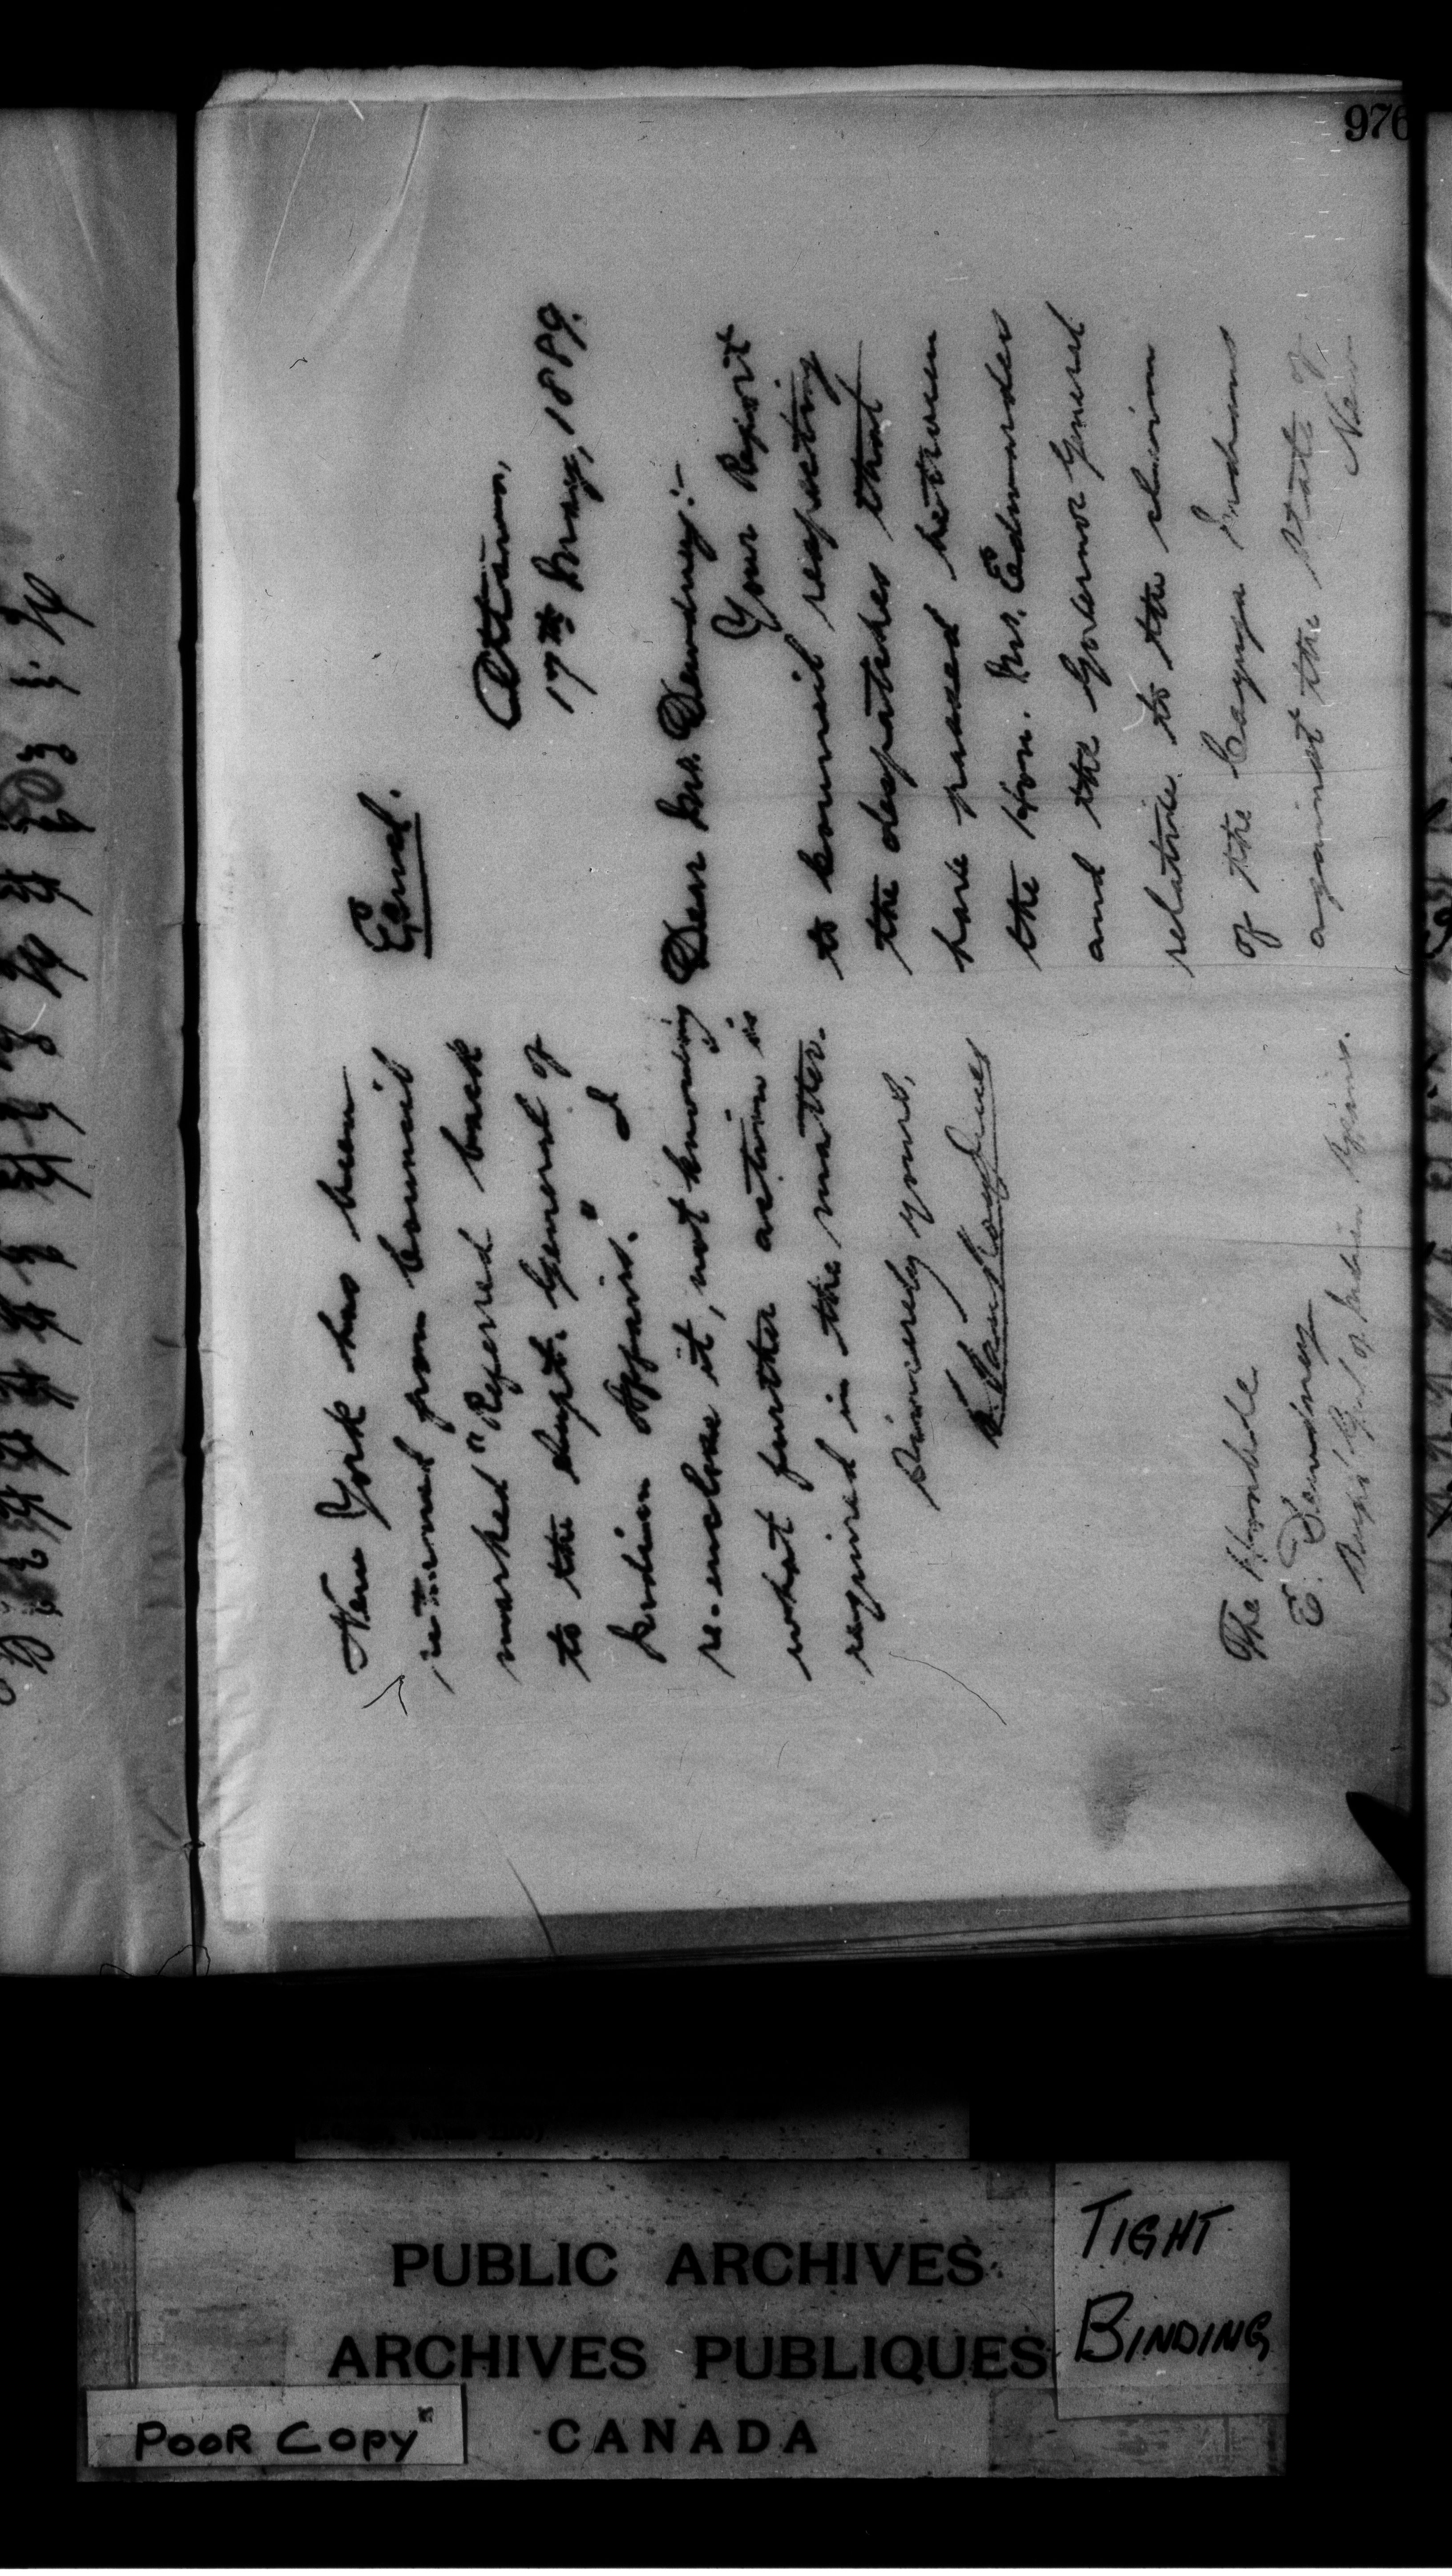 976
Encl.
Ottawa,
17th May, 1889.
Dear Mr. Dewdney:-
Your Report
to Council respecting
the despatches that
have passed between
the Hon. Mr. Edwardes
and the Governor General
relative to the claim
of the Cayuga Indians
against the State of
New
New York has been
returned from Council
marked "Referred back
to the Supt. General of
Indian Affairs." I
re-enclose it, not knowing
what further action is
required in the matter.
Sincerely yours,
The Honble
E. Dewdney
Supt. Genl of Indian Affairs.
PUBLIC ARCHIVES
ARCHIVES PUBLIQUES
CANADA
TIGHT
BINDING
POOR COPY